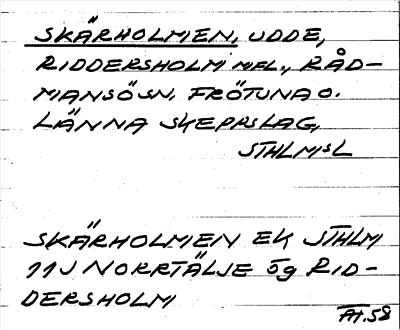 SKÄRHOLMEN, UDDE,
RIDDERSHOLM MFL., RÅD-
MANSÖ SN. FRÖTUNA O.
LÄNNA SKEPPSLAG,
STHLMSL
SKÄRHOLMEN EK STHLM
11J NORRTÄLJE 5g RID-
DERSHOLM